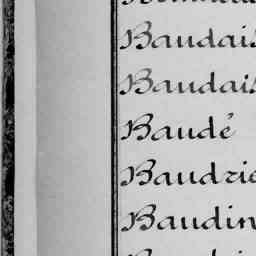 Baudais
Baudais
Baudé
Baudrie
Baudin